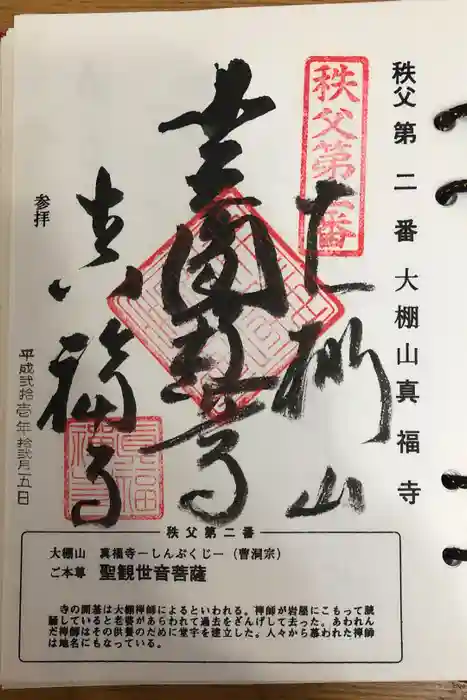 秩父第二番 大棚山真福寺
秩父第二番
大棚山
真福寺
参拝
平成弐拾壱年拾弐月五日
秩父第二番
大棚山 真福寺ーしんぷくじー（曹洞宗）
ご本尊 聖観世音菩薩
寺の開基は大棚禅師によるといわれる。禅師が岩屋にこもって読
誦していると老婆があらわれて過去をざんげして去った。あわれん
だ禅師はその供養のために堂宇を建立した。人々から慕われた禅師
は地名にもなっている。